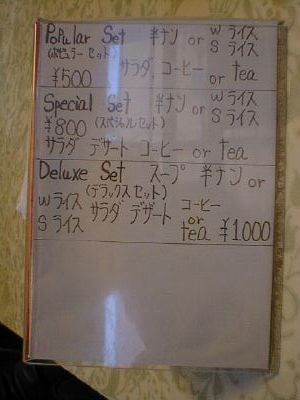 Popular Set 半ナン or Wライス
(ポピュラーセット) Sライス
¥500 サラダ コーヒー or tea
Special Set 半ナン or Wライス
¥800 (スペシャルセット) Sライス
サラダ デザート コーヒー or tea
Deluxe Set スープ 半ナン or
(デラックスセット)
Wライス サラダ デザート コーヒー
Sライス or
tea ¥1.000